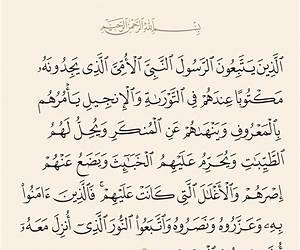 بِسْمِ ٱللَّهِ ٱلرَّحْمَٰنِ ٱلرَّحِيمِ
ٱلَّذِينَ يَتَّبِعُونَ ٱلرَّسُولَ ٱلنَّبِيَّ ٱلْأُمِّيَّ ٱلَّذِي يَجِدُونَهُۥ
مَكْتُوبًا عِندَهُمْ فِي ٱلتَّوْرَىٰةِ وَٱلْإِنجِيلِ يَأْمُرُهُم
بِٱلْمَعْرُوفِ وَيَنْهَىٰهُمْ عَنِ ٱلْمُنكَرِ وَيُحِلُّ لَهُمُ
ٱلطَّيِّبَٰتِ وَيُحَرِّمُ عَلَيْهِمُ ٱلْخَبَٰٓئِثَ وَيَضَعُ عَنْهُمْ
إِصْرَهُمْ وَٱلْأَغْلَٰلَ ٱلَّتِي كَانَتْ عَلَيْهِمْ ۚ فَٱلَّذِينَ ءَامَنُوا۟
بِهِۦ وَعَزَّرُوهُ وَنَصَرُوهُ وَٱتَّبَعُوا۟ ٱلنُّورَ ٱلَّذِيٓ أُنزِلَ مَعَهُۥٓ